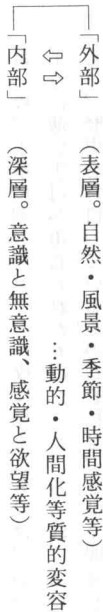 「外部」 （表層。自然・風景・季節・時間感覚等）
⇦⇨ …動的・人間化等質的変容
「内部」 （深層。意識と無意識、感覚と欲望等）